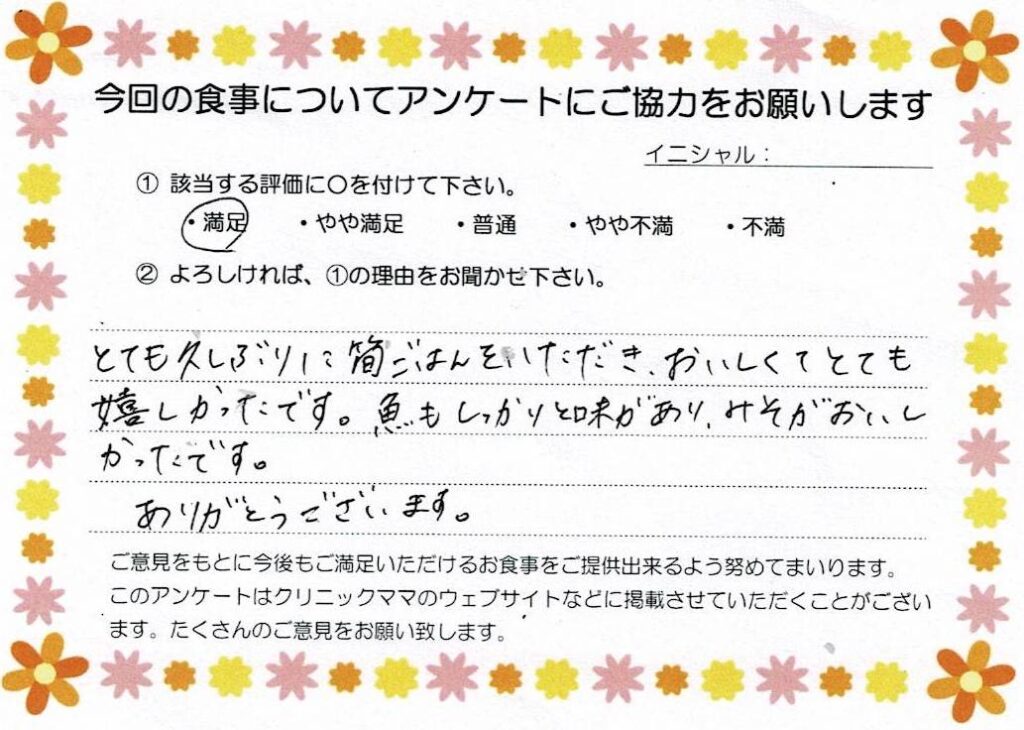 今回の食事についてアンケートにご協力をお願いします
イニシャル：
① 該当する評価に〇を付けて下さい。
・満足 ・やや満足 ・普通 ・やや不満 ・不満
② よろしければ、①の理由をお聞かせ下さい。
とても久しぶりに筍ごはんをいただき、おいしくてとても
嬉しかったです。魚もしっかりと味があり、みそがおいし
かったです。
ありがとうございます。
ご意見をもとに今後もご満足いただけるお食事をご提供出来るよう努めてまいります。
このアンケートはクリニックママのウェブサイトなどに掲載させていただくことがござい
ます。たくさんのご意見をお願い致します。